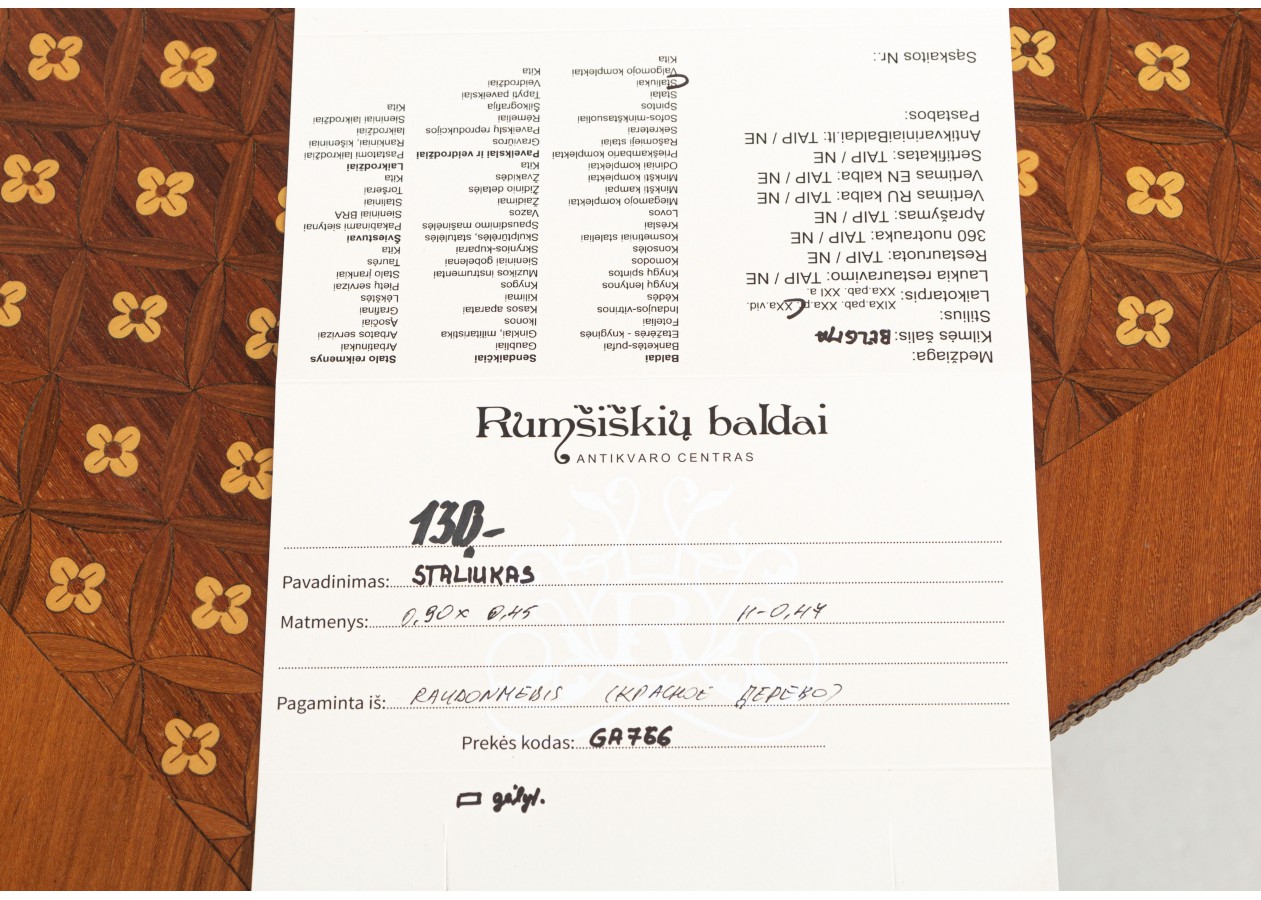 Rumšiškių baldai
ANTIKVARO CENTRAS
130,-
Pavadinimas: STALIUKAS
Matmenys: 0,90 x 0,45 H-0,47
Pagaminta iš: RAUDONMEDIS (КРАСНОЕ ДЕРЕВО)
Prekės kodas: GA766
Medžiaga:
Kilmės šalis: BELGIJA
Stilius:
Laikotarpis: XIXa pab. XXa.pr. XXa.vid.
XXa.pab. XXI a.
Laukia restauravimo: TAIP / NE
Restauruota: TAIP / NE
360 nuotrauka: TAIP / NE
Aprašymas: TAIP / NE
Vertimas RU kalba: TAIP / NE
Vertimas EN kalba: TAIP / NE
Sertifikatas: TAIP / NE
AntikvariniaiBaldai.lt: TAIP / NE
Pastabos:
Sąskaitos Nr.:
Baldai
Banketės-pufai
Etažėrės - knyginės
Foteliai
Indaujos-vitrinos
Kėdės
Knygų lentynos
Knygų spintos
Komodos
Konsolės
Kosmetiniai staleliai
Krėslai
Lovos
Miegamojo komplektai
Minkšti kampai
Minkšti komplektai
Odiniai komplektai
Prieškambario komplektai
Rašomieji stalai
Sekreterai
Sofos-minkštasuoliai
Spintos
Stalai
Staliukai
Valgomojo komplektai
Kita
Sendaikčiai
Gaubliai
Ginklai, militaristika
Ikonos
Kasos aparatai
Kilimai
Knygos
Muzikos instrumentai
Sieniniai gobelenai
Skrynios-kuparai
Skulptūrėlės, statulėlės
Spausdinimo mašinėlės
Vazos
Žaidimai
Židinio detalės
Žvakidės
Kita
Paveikslai ir veidrodžiai
Graviūros
Paveikslų reprodukcijos
Rėmeliai
Šilkografija
Tapyti paveikslai
Veidrodžiai
Kita
Stalo reikmenys
Arbatinukai
Arbatos servizai
Ąsočiai
Grafinai
Lėkštės
Pietų servizai
Stalo įrankiai
Taurės
Kita
Šviestuvai
Pakabinami sietynai
Sieniniai BRA
Staliniai
Toršerai
Kita
Laikrodžiai
Pastatomi laikrodžiai
Rankiniai, kišeniniai
laikrodžiai
Sieniniai laikrodžiai
Kita